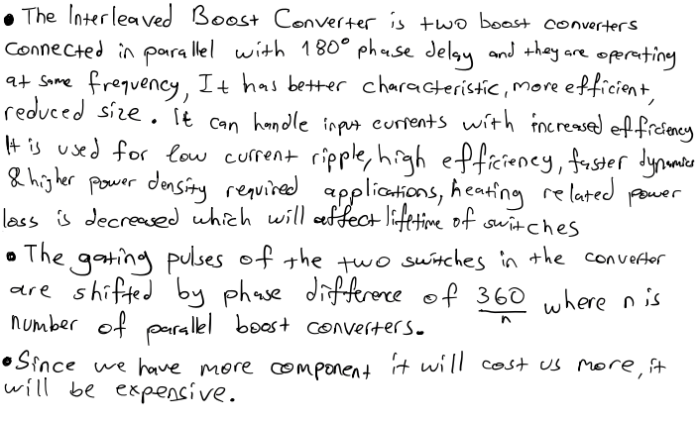 • The Interleaved Boost Converter is two boost converters
connected in parallel with 180° phase delay and they are operating
at same frequency, It has better characteristic, more efficient,
reduced size. It can handle input currents with increased efficiency
It is used for low current ripple, high efficiency, faster dynamics
& higher power density required applications, heating related power
loss is decreased which will affect lifetime of switches
• The gating pulses of the two switches in the converter
are shifted by phase difference of 360/n where n is
number of parallel boost converters.
• Since we have more component it will cost us more, it
will be expensive.